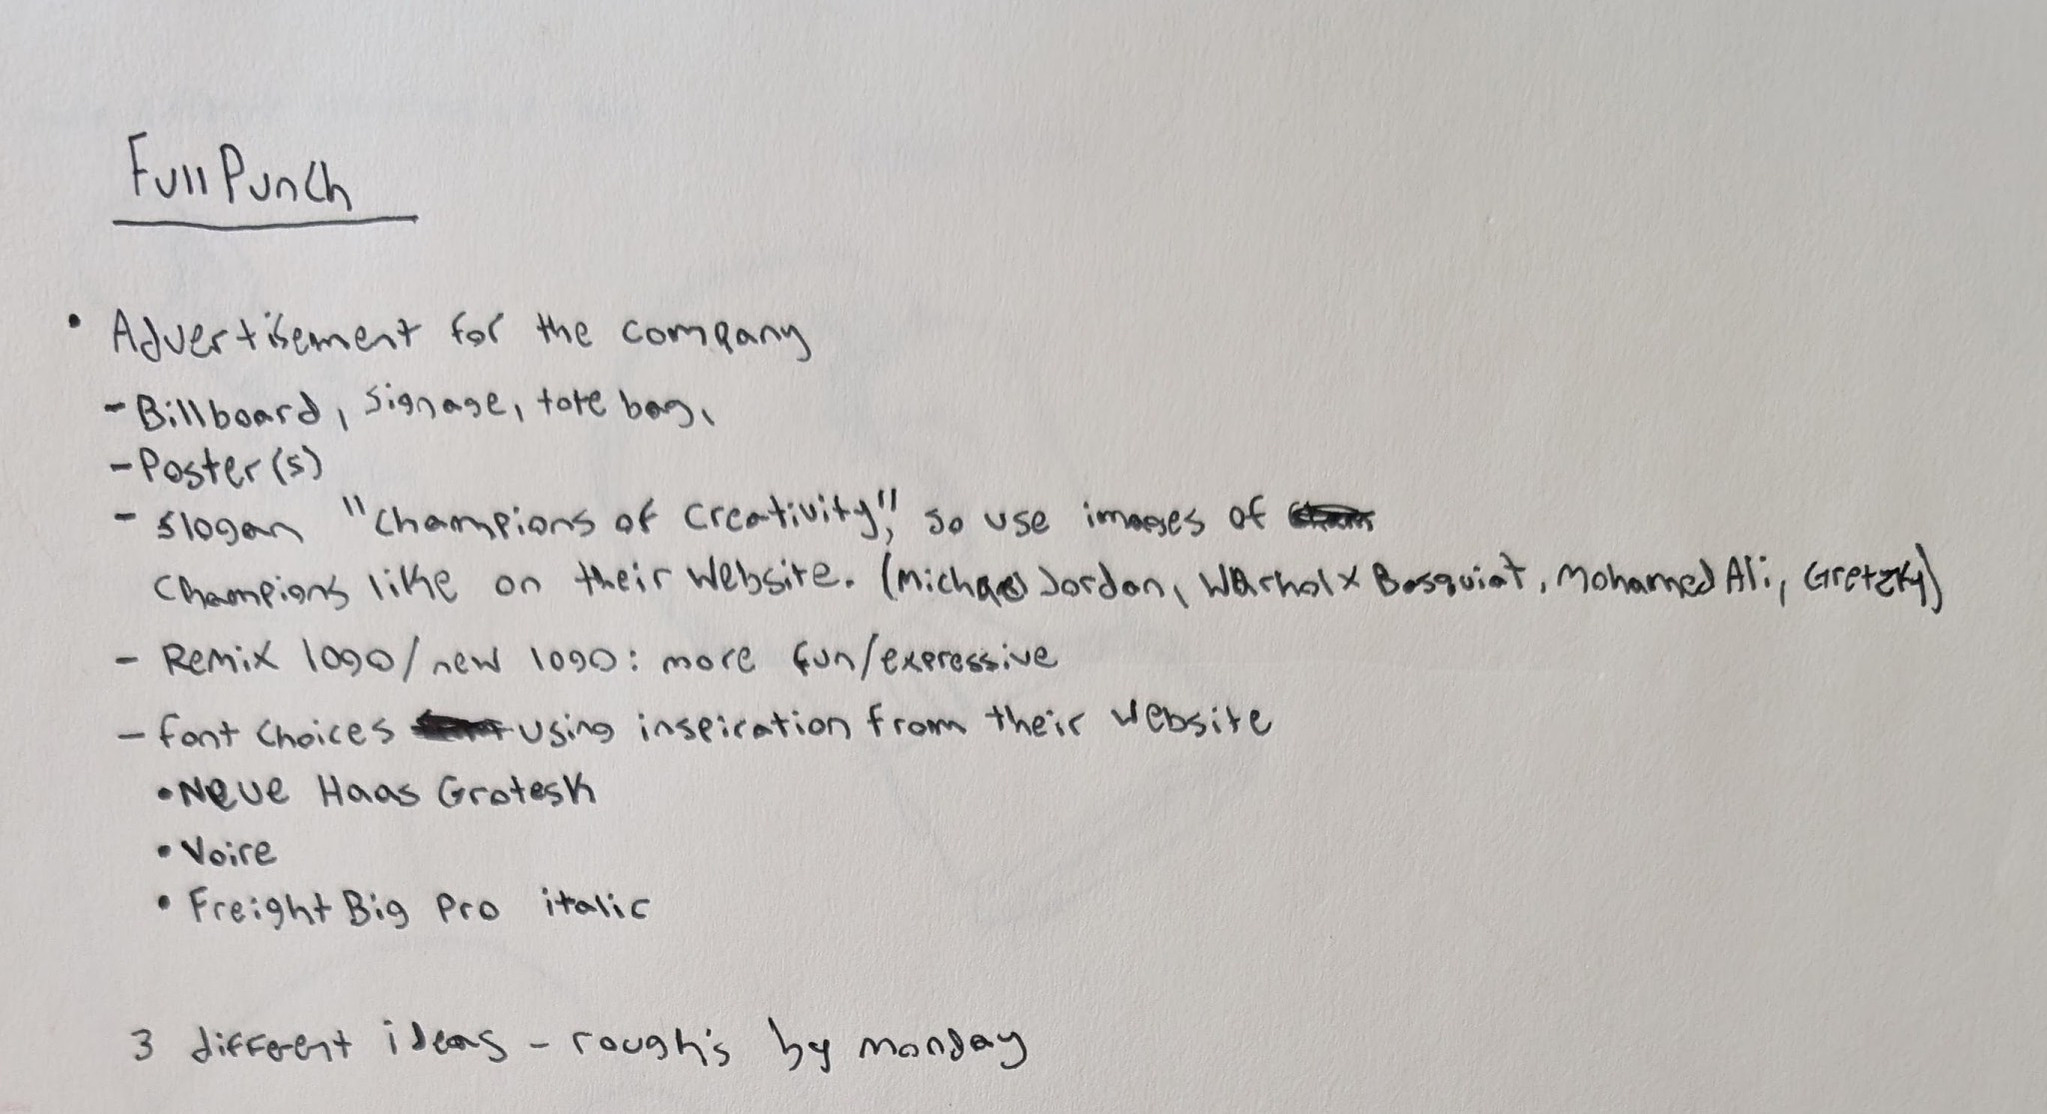 Full Punch
• Advertisement for the company
- Billboard, signage, tote bag,
- Poster(s)
- slogan "Champions of Creativity", so use images of
Champions like on their website. (Michael Jordan, Warhol x Basquiat, Mohamed Ali, Gretzky)
- Remix logo/new logo: more fun/expressive
- font choices using inspiration from their website
• Neue Haas Grotesk
• Voire
• Freight Big Pro italic
3 different ideas - rough's by monday